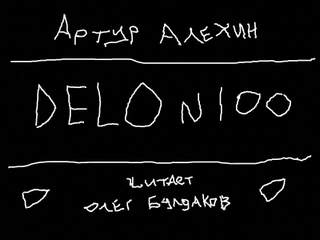 Артур Алехин
DELO N100
Читает
Олег Булдаков